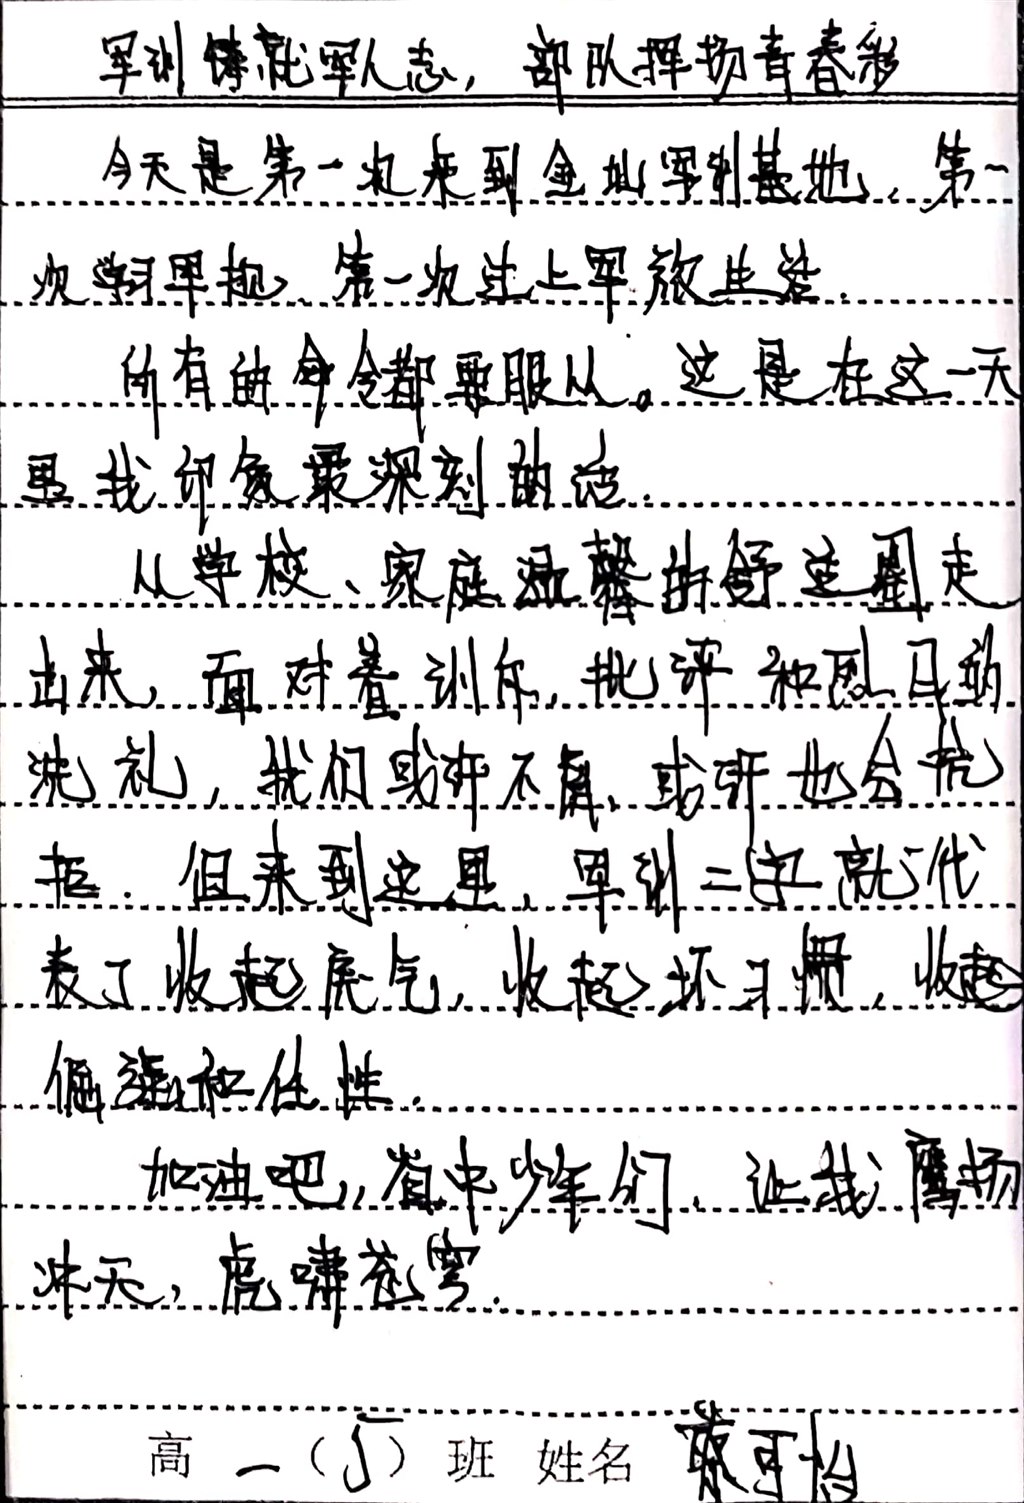 军训铸就军人志，部队挥扬青春彩
今天是第一次来到金山军训基地、第一
次学习军规、第一次过上军旅生活.
所有的命令都要服从。这是在这一天
里我印象最深刻的话.
从学校、家庭温馨的舒适圈走
出来，面对着训斥，批评和烈日的
洗礼，我们或许不屑、或许也会抗
拒. 但来到这里，军训二字就代
表了收起戾气，收起坏习惯，收起
倔强和任性.
加油吧，中少年们、让我们鹰扬
冲天，虎啸苍穹.
高一（5）班 姓名 可怡